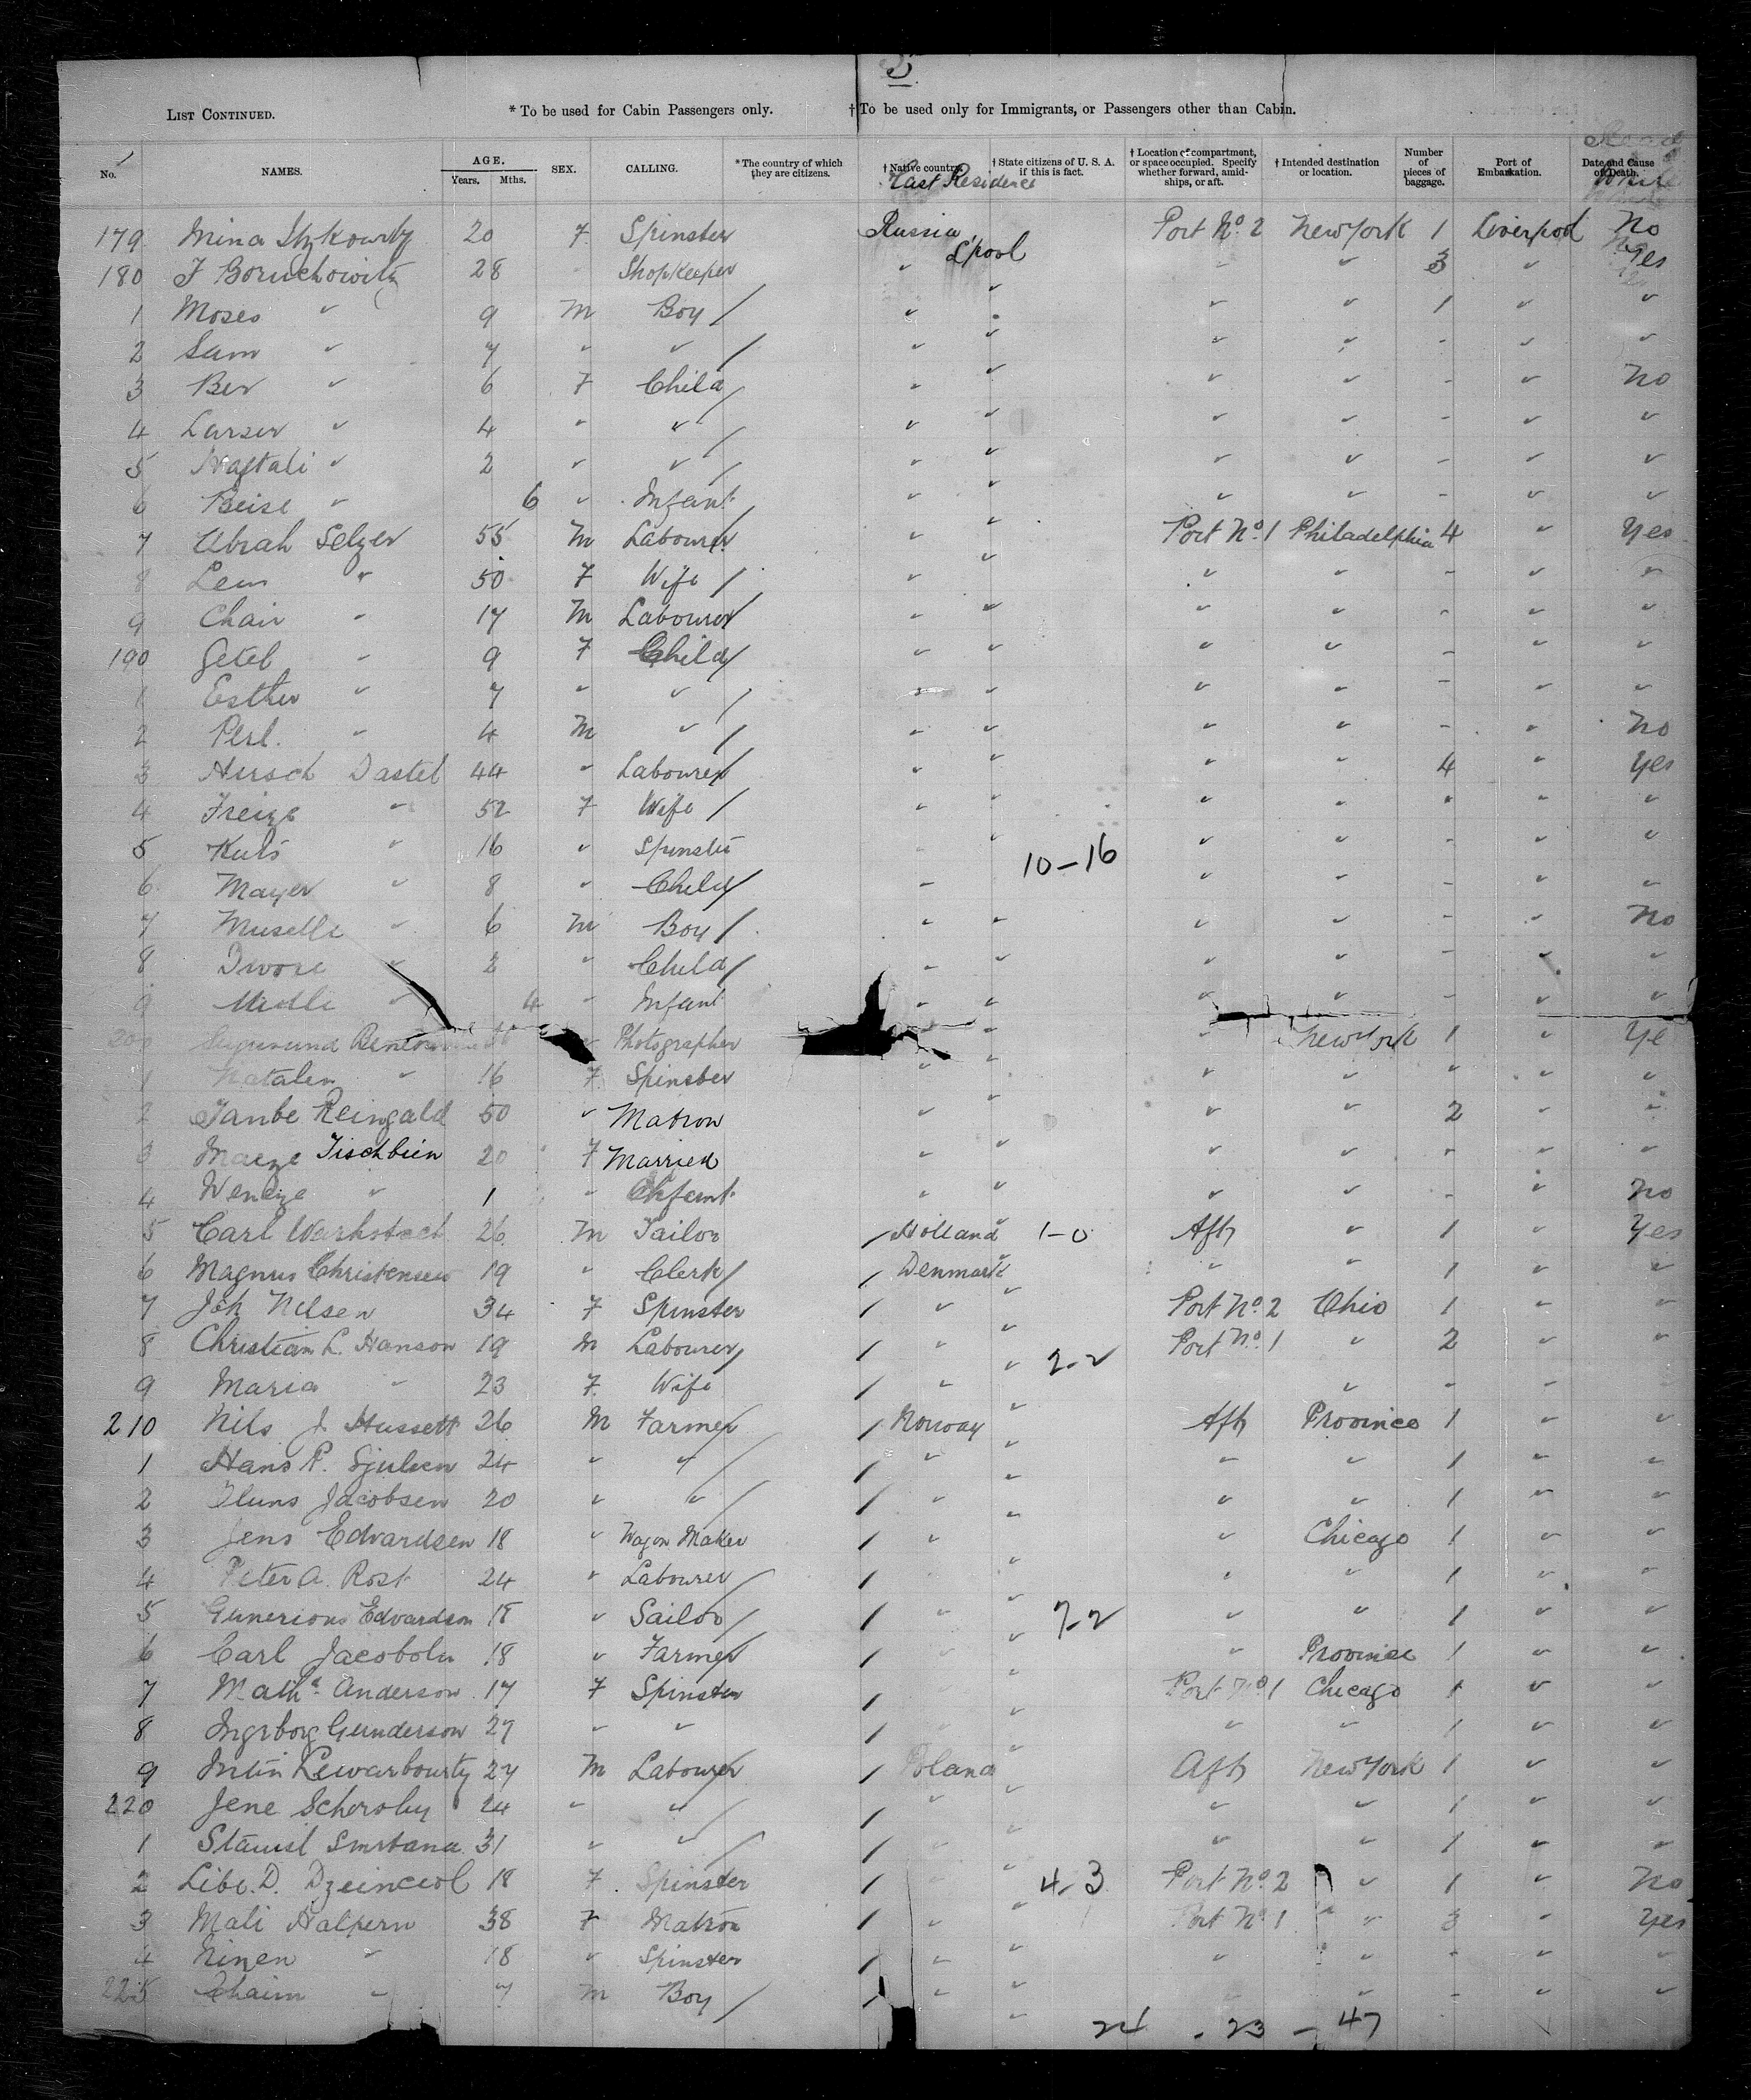 5
LIST CONTINUED. * To be used for Cabin Passengers only. † To be used only for Immigrants, or Passengers other than Cabin.
No. NAMES. AGE. Years. Mths. SEX. CALLING. * The country of which they are citizens. † Native country. Last Residence † State citizens of U. S. A. if this is fact. † Location of compartment, or space occupied. Specify whether forward, amidships, or aft. † Intended destination or location. Number of pieces of baggage. Port of Embarkation. Date and Cause of Death. Read Write
179 Mina Itzkowitz 20 F Spinster Russia L'pool Port No. 2 New York 1 Liverpool No
180 F Boruchowitz 28 " Shopkeeper " " " " 3 " Yes
1 Moses " 9 M Boy " " " " 1 " "
2 Sam " 7 " " " " " " - " "
3 Ber " 6 F Child " " " " - " No
4 Larser " 4 " " " " " " - " "
5 Naftali " 2 " " " " " " - " "
6 Beise " 6 " Infant " " " " - " "
7 Abrah Selzer 55 M Labourer " " Port No. 1 Philadelphia 4 " Yes
8 Lem " 50 F Wife " " " " - " "
9 Chair " 17 M Labourer " " " " - " "
190 Getel " 9 F Child " " " " - " "
1 Esther " 7 " " " " " " - " "
2 Perl. " 4 M " " " " " - " No
3 Hirsch Dastel 44 " Labourer " " " " 4 " Yes
4 Freize " 52 F Wife " " " " " " "
5 " 16 " Spinster " 10-16 " " - " "
6 Mayer " 8 " Child " " " - " "
7 Muselle " 6 M Boy " " " " - " No
8 Dwore " 2 " Child " " " " - " "
9 " 4 " Infant " " " " - " "
200 " Photographer " " New York 1 " Ye
1 Natalen " 16 F Spinster " " " " " " "
2 Taube Reingald 50 " Matron " " " " 2 " "
3 Maeze Tischbein 20 F Married " " " " " " "
4 Wenege " 1 " Infant " " " " - " No
5 Carl Warhstach 26 M Tailor Holland " 1-0 Aft " 1 " Yes
6 Magnus Christensen 19 " Clerk Denmark " " " 1 " "
7 Joh Nilsen 34 F Spinster " " Port No. 2 Ohio 1 " "
8 Christian L. Hanson 19 M Labourer " " 2-2 Port No. 1 " 2 " "
9 Maria " 23 F. Wife " " " - - "
210 Nils J Hussett 26 M Farmer Norway " Aft Province 1 " "
1 Hans P. Sjulsen 24 " " " " " " 1 " "
2 Jacobsen 20 " " " " " " 1 " "
3 Jens Edvardsen 18 " Wagon Maker " " " Chicago 1 " "
4 Peter A. Rost 24 " Labourer " " " " 1 " "
5 Gunerious Edvardson 18 " Sailor " " 7-2 " " 1 " "
6 Carl 18 " Farmer " " " Province 1 " "
7 Matha Anderson 17 F Spinster " Port No. 1 Chicago 1 " "
8 Ingrborg Gunderson 27 " " " " " " 1 " "
9 Lewarbourty 27 M Labourer Poland " Aft New York 1 " "
220 Jene Schersby 24 " " " " " " 1 " "
1 Stanisl Smrtana 31 " " " " " " 1 " "
2 Libe. D. Dzeinceol 18 F. Spinster " 4-3 Port No. 2 " 1 " No
3 Mali Halpern 38 F Matron " " Port No. 1 " 3 " Yes
4 Ninen " 18 " Spinster " " " " - " "
225 Chaim " 7 M Boy " " " " - " "
24 - 23 - 47